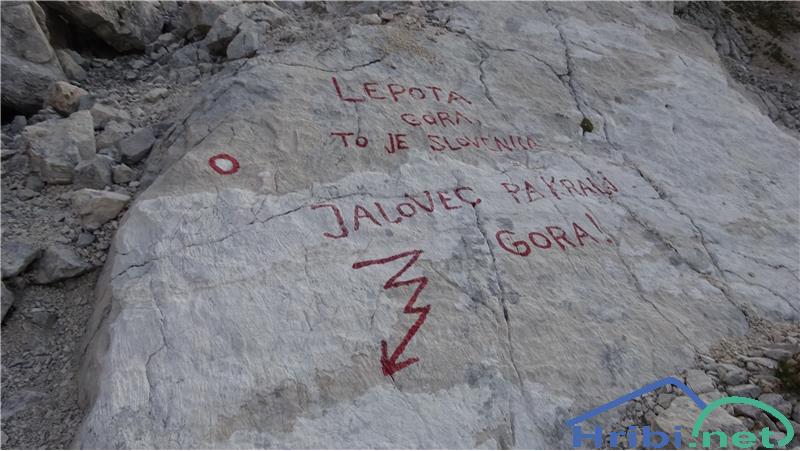 LEPOTA
GORA,
TO JE SLOVENIJA
JALOVEC PA KRALJ
GORA!
Hribi.net